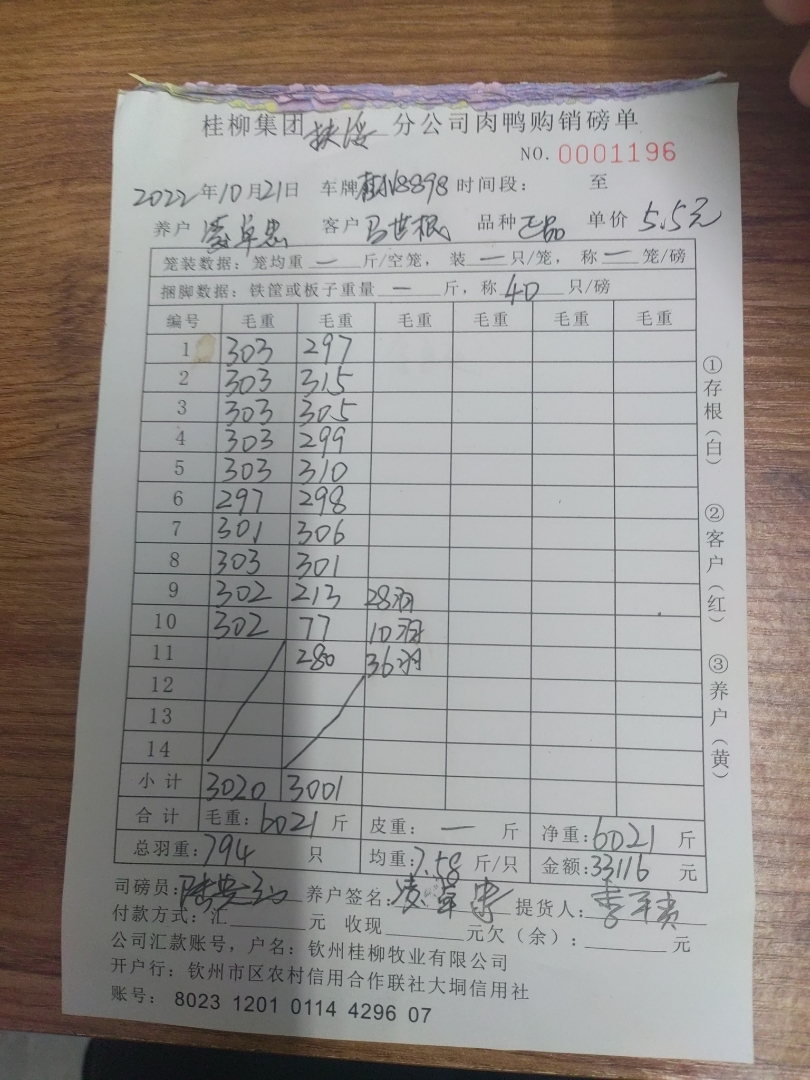 桂柳集团扶绥分公司肉鸭购销磅单
NO. 0001196
2022年10月21日 车牌8898 时间段： 至
养户 凌卓忠 客户 马世根 品种 正品 单价 5.5元
笼装数据：笼均重 一 斤/空笼，装 一 只/笼，称 一 笼/磅
捆脚数据：铁筐或板子重量 一 斤，称 40 只/磅
编号 毛重 毛重 毛重 毛重 毛重 毛重
1 303 297
2 303 315
3 303 305
4 303 299
5 303 310
6 297 298
7 301 306
8 303 301
9 302 213 28羽
10 302 77 10羽
11 280 36羽
12
13
14
小计 3020 3001
合计 毛重：6021斤 皮重：一 斤 净重：6021斤
总羽重：794 只 均重：7.58斤/只 金额：33116 元
司磅员： 养户签名：凌卓忠 提货人：
付款方式：汇 元 收现 元欠（余）： 元
公司汇款账号，户名：钦州桂柳牧业有限公司
开户行：钦州市区农村信用合作联社大垌信用社
账号：8023 1201 0114 4296 07
①存根（白） ②客户（红） ③养户（黄）